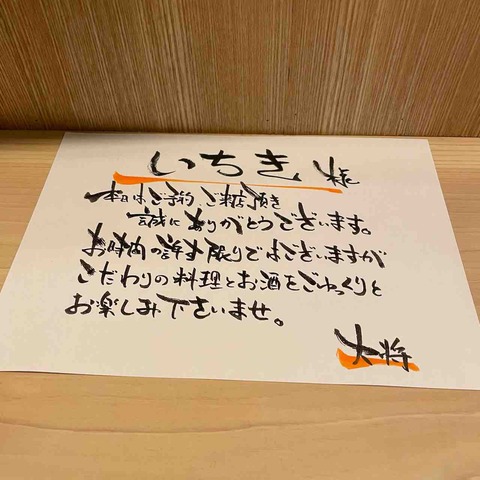 いちき様
本日はご予約、ご来店頂き
誠にありがとうございます。
お時間の許す限りではございますが
こだわりの料理とお酒をごゆっくりと
お楽しみ下さいませ。
大将